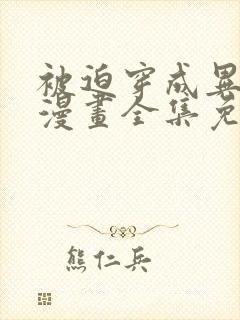 被迫穿成異
漫畫全集免
熊仁兵